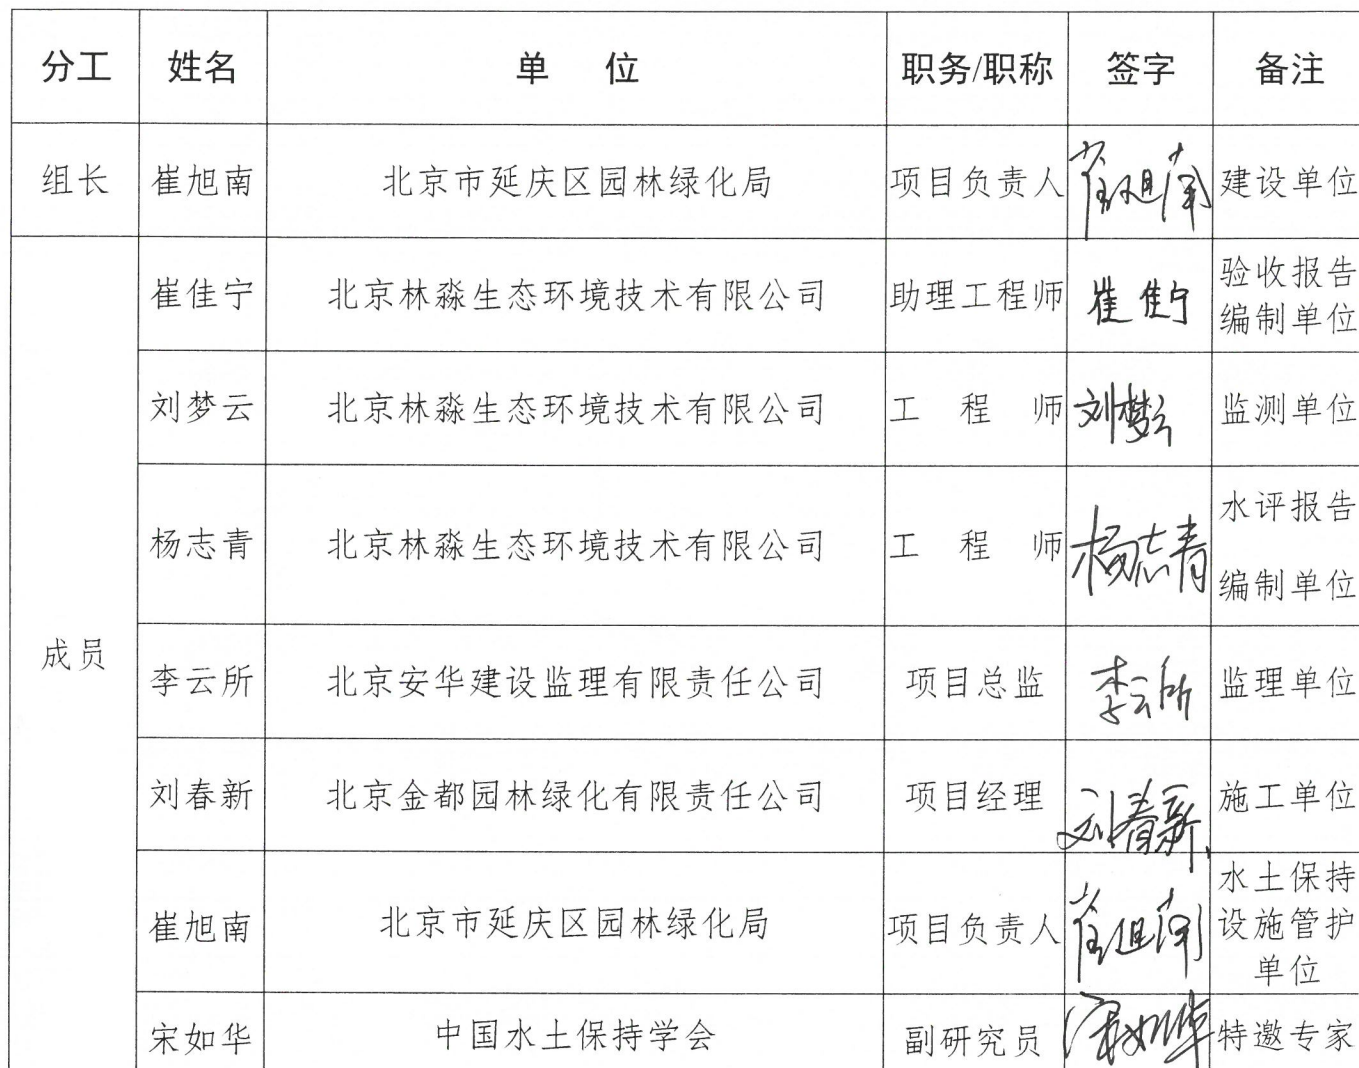 分工 姓名 单 位 职务/职称 签字 备注
组长 崔旭南 北京市延庆区园林绿化局 项目负责人 崔旭南 建设单位
成员
崔佳宁 北京林淼生态环境技术有限公司 助理工程师 崔佳宁 验收报告
编制单位
刘梦云 北京林淼生态环境技术有限公司 工 程 师 刘梦云 监测单位
杨志青 北京林淼生态环境技术有限公司 工 程 师 杨志青 水评报告
编制单位
李云所 北京安华建设监理有限责任公司 项目总监 李云所 监理单位
刘春新 北京金都园林绿化有限责任公司 项目经理 刘春新 施工单位
崔旭南 北京市延庆区园林绿化局 项目负责人 崔旭南 水土保持
设施管护
单位
宋如华 中国水土保持学会 副研究员 宋如华 特邀专家